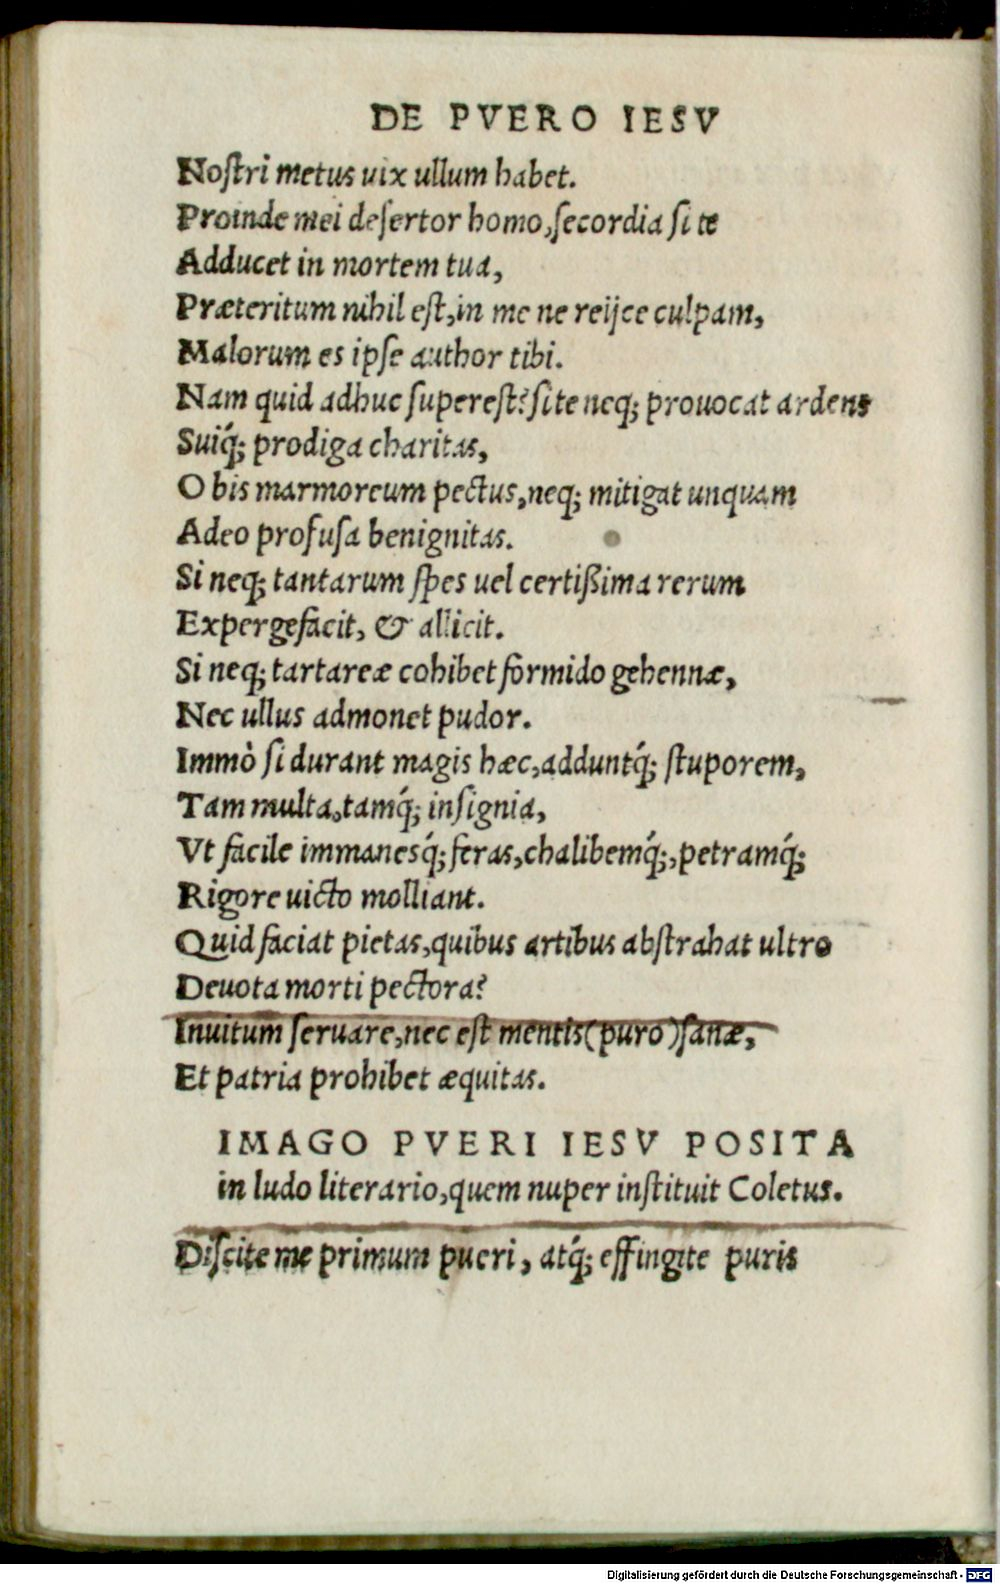 DE PVERO IESV
Noſtri metus uix ullum habet.
Proinde mei deſertor homo,ſecordia ſi te
Adducet in mortem tua,
Præteritum nihil eſt,in me ne reijce culpam,
Malorum es ipſe author tibi.
Nam quid adhuc ſupereſt?ſi te neq; prouocat ardens
Suiq́; prodiga charitas,
O bis marmoreum pectus,neq; mitigat unquam
Adeo profuſa benignitas.
Si neq; tantarum ſpes uel certißima rerum
Expergefacit, & allicit.
Si neq; tartareæ cohibet formido gehennæ,
Nec ullus admonet pudor.
Immò ſi durant magis hæc,adduntq́; ſtuporem,
Tam multa,tamq́; inſignia,
Vt facile immanesq́; feras,chalibemq́;,petramq́;
Rigore uicto molliant.
Quid faciat pietas,quibus artibus abſtrahat ultro
Deuota morti pectora?
Inuitum ſeruare,nec eſt mentis(puro)ſanæ,
Et patria prohibet æquitas.
IMAGO PVERI IESV POSITA
in ludo literario,quem nuper inſtituit Coletus.
Diſcite me primum pueri, atq́; effingite puris
Digitalisierung gefördert durch die Deutsche Forschungsgemeinschaft - DFG